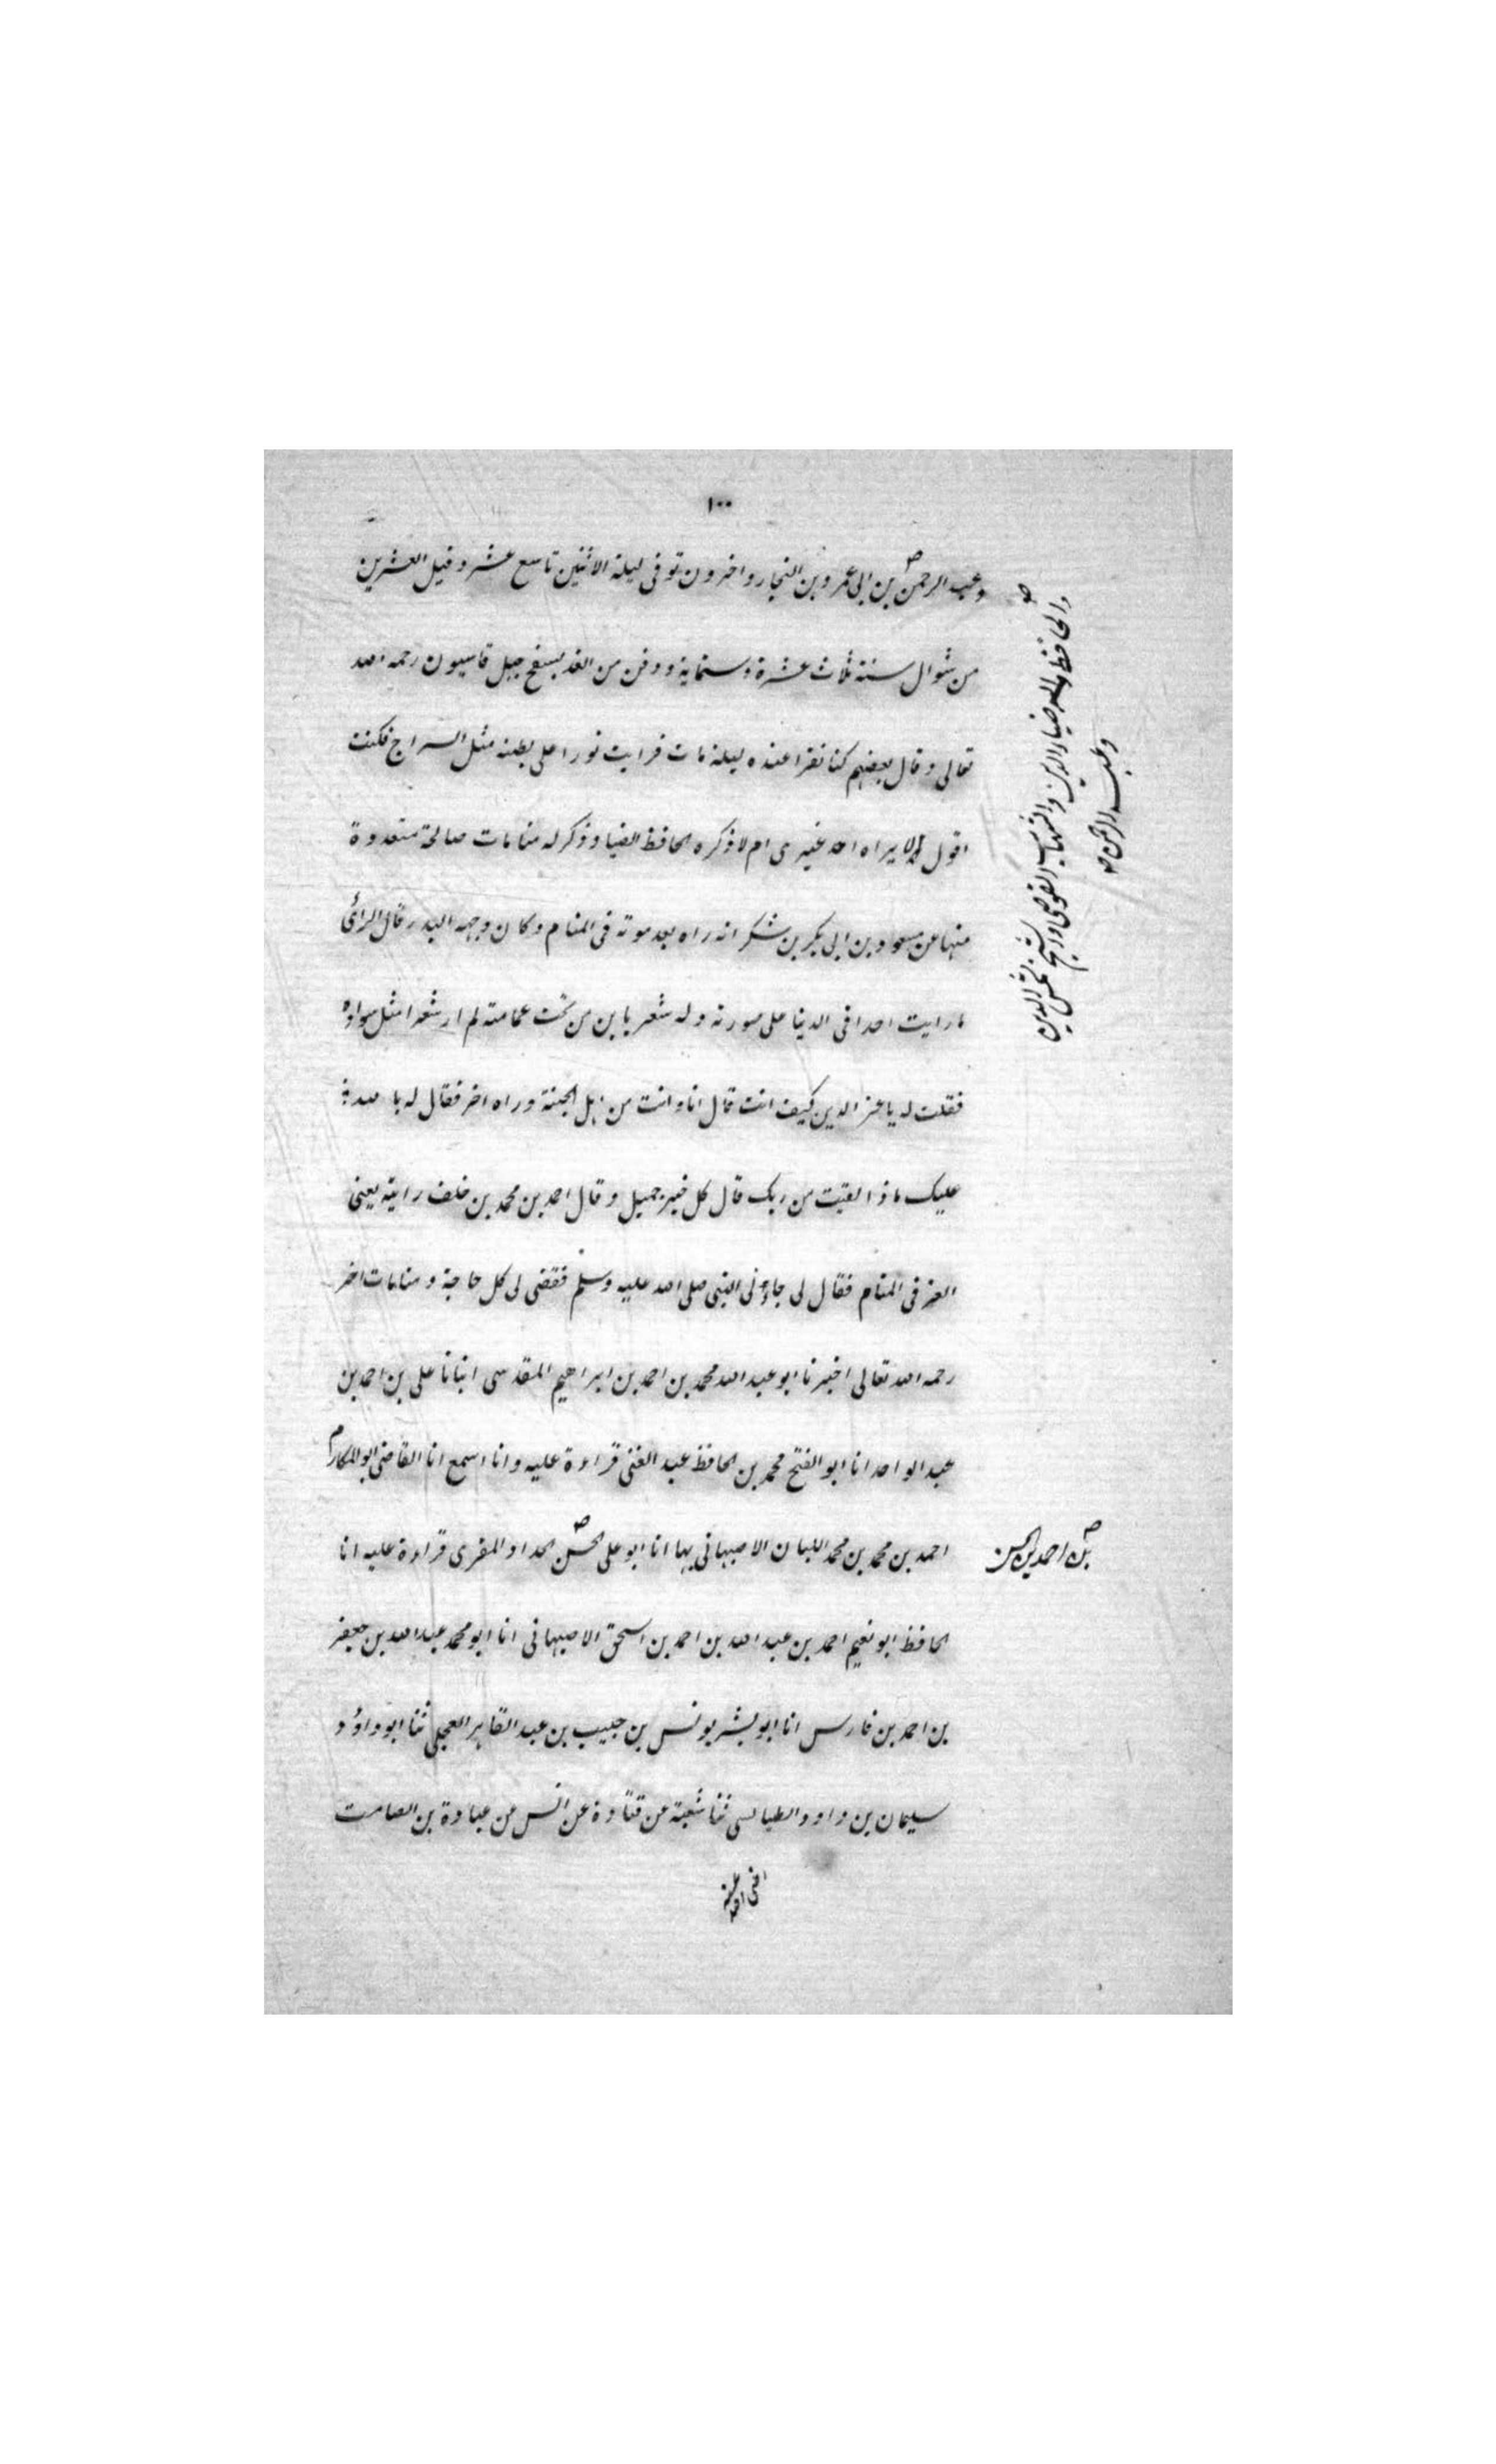 ١٠٠
وعبد الرحمن بن ابى عمر وبن النجار واخرون توفى ليلة الاثنين تاسع عشر وقيل العشرين
من شوال سنة ثلاث عشرة وستماية ودفن من الغد بسفح جبل قاسيون رحمه الله
تعالى وقال بعضهم كنا نقرا عنده ليلة مات فرايت نورا على بطنه مثل السراج فكنت
اقول لا يراه احد غيرى ام لا ذكره الحافظ الضيا وذكر له منامات صالحة متعددة
منها عن مسعود بن ابى بكر بن شكر انه راه بعد موته فى المنام وكان وجهه البدر قال الرائى
ما رايت احدا فى الدنيا على صورته وله شعر باين من تحت عمامته لم ار شعرا مثل سواده
فقلت له يا عز الدين كيف انت قال انا وانت من اهل الجنة وراه اخر فقال له بالله
عليك ماذا لقيت من ربك قال كل خير جميل وقال احمد بن محمد بن خلف رايته يعنى
العز فى المنام فقال لى جاؤنى النبى صلى الله عليه وسلم فقضى لى كل حاجة ومنامات اخر
رحمه الله تعالى اخبرنا ابو عبد الله محمد بن احمد بن ابراهيم المقدسى انبانا على بن احمد بن
عبد الواحد انا ابو الفتح محمد بن الحافظ عبد الغنى قراءة عليه وانا اسمع انا القاضى ابو المكارم
احمد بن محمد بن محمد اللبان الاصبهانى بها انا ابو على الحسن الحداد المقرى قراءة عليه انا
الحافظ ابو نعيم احمد بن عبد الله بن احمد بن اسحق الاصبهانى انا ابو محمد عبد الله بن جعفر
بن احمد بن فارس انا ابو بشر يونس بن حبيب بن عبد القاهر العجلى ثنا ابو داؤد
سليمان بن داود الطيالسى ثنا شعبة عن قتادة عن انس من عبادة بن الصامت
والحافظ ضياء الدين والشهاب القوصى والشيخ شمس الدين
وعبد الرحمن صح
بن احمد بن الحسن